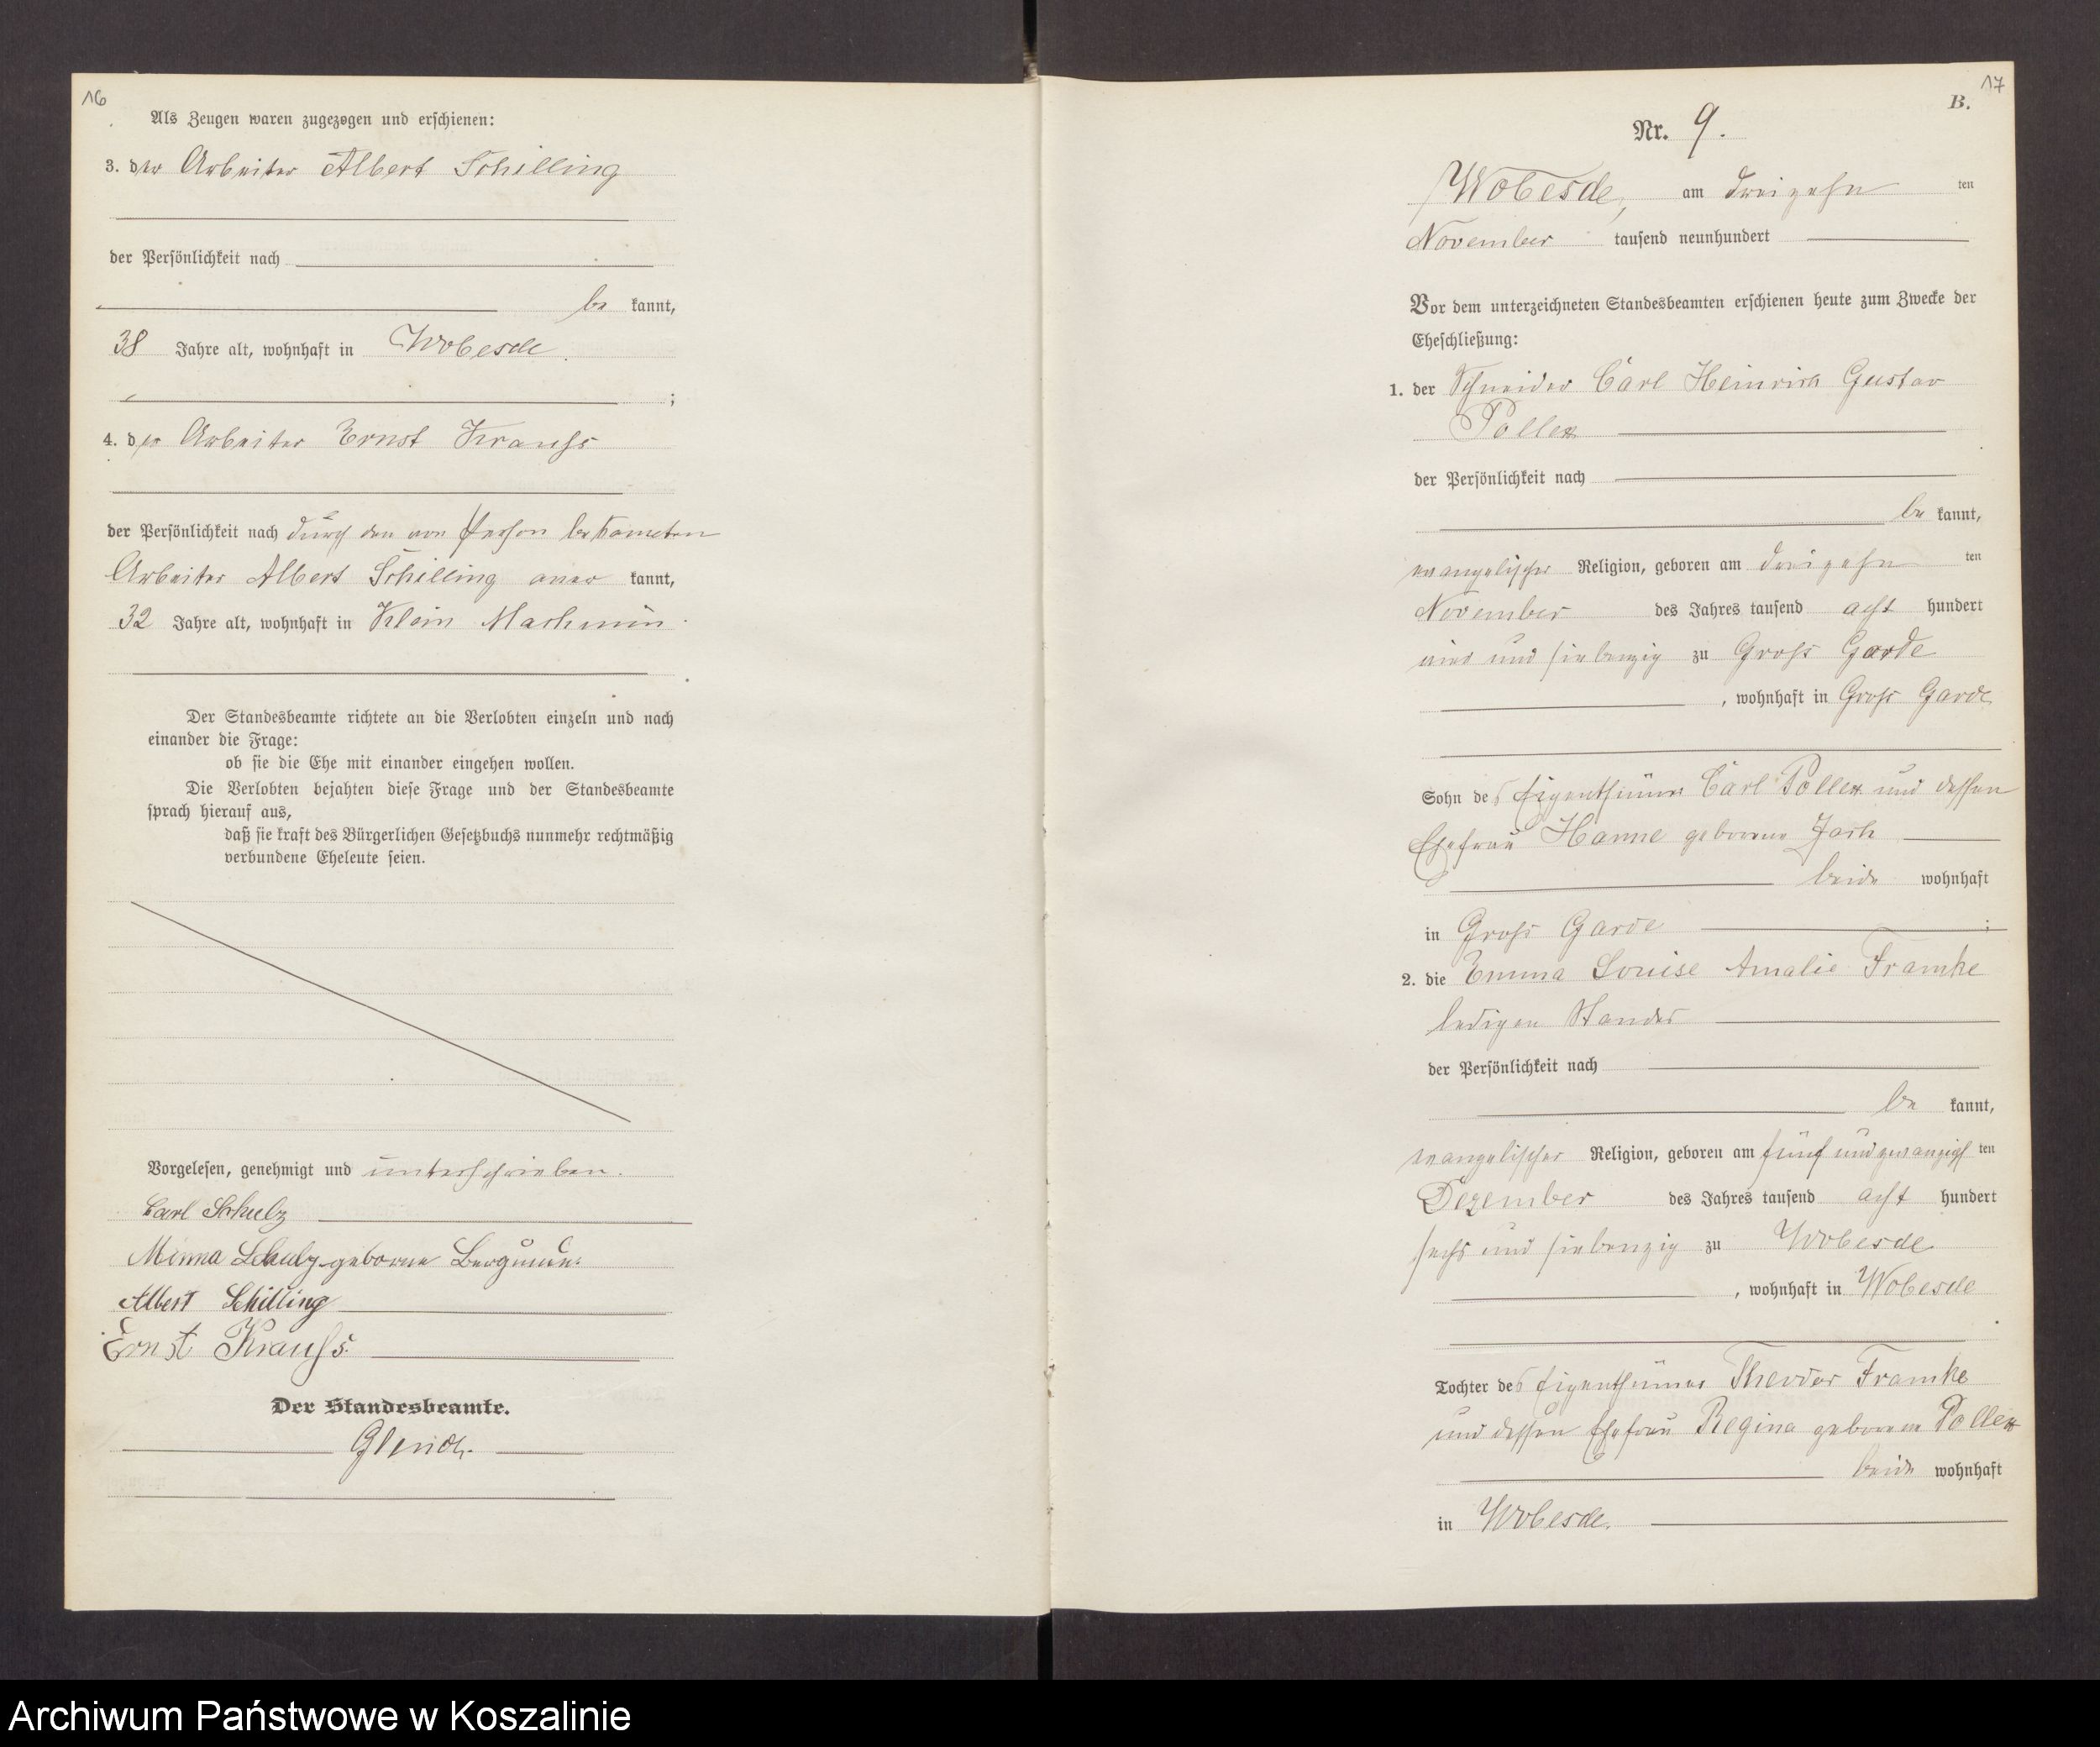 16
Als Zeugen waren zugezogen und erschienen:
3. der Arbeiter Albert Schilling
der Persönlichkeit nach
be kannt,
38 Jahre alt, wohnhaft in Wobesde
;
4. der Arbeiter Ernst Krauss
der Persönlichkeit nach durch den von Person bekannten
Arbeiter Albert Schilling aner kannt,
32 Jahre alt, wohnhaft in Klein Machmin
Der Standesbeamte richtete an die Verlobten einzeln und nach
einander die Frage:
ob sie die Ehe mit einander eingehen wollen.
Die Verlobten bejahten diese Frage und der Standesbeamte
sprach hierauf aus,
daß sie kraft des Bürgerlichen Gesetzbuchs nunmehr rechtmäßig
verbundene Eheleute seien.
Vorgelesen, genehmigt und unterschrieben.
Carl Schulz
Minna Schulz geborene
Albert Schilling
Ernst Krauss
Der Standesbeamte.
17
B.
Nr. 9.
Wobesde, am dreizehn ten
November tausend neunhundert
Vor dem unterzeichneten Standesbeamten erschienen heute zum Zwecke der
Eheschließung:
1. der Schneider Carl Heinrich Gustav
Pollex
der Persönlichkeit nach
be kannt,
evangelischer Religion, geboren am dreizehn ten
November des Jahres tausend acht hundert
vier und siebenzig zu Gross Garde
, wohnhaft in Gross Garde
Sohn des Eigenthümer Carl Pollex und dessen
Ehefrau Hanne geborene
beide wohnhaft
in Gross Garde ;
2. die Emma Louise Amalie Framke
ledigen Standes
der Persönlichkeit nach
be kannt,
evangelischer Religion, geboren am fünf und zwanzigs ten
Dezember des Jahres tausend acht hundert
sechs und siebenzig zu Wobesde
, wohnhaft in Wobesde
Tochter des Eigenthümer Theodor Framke
und dessen Ehefrau Regina geborene Pollex
beide wohnhaft
in Wobesde.
Archiwum Państwowe w Koszalinie